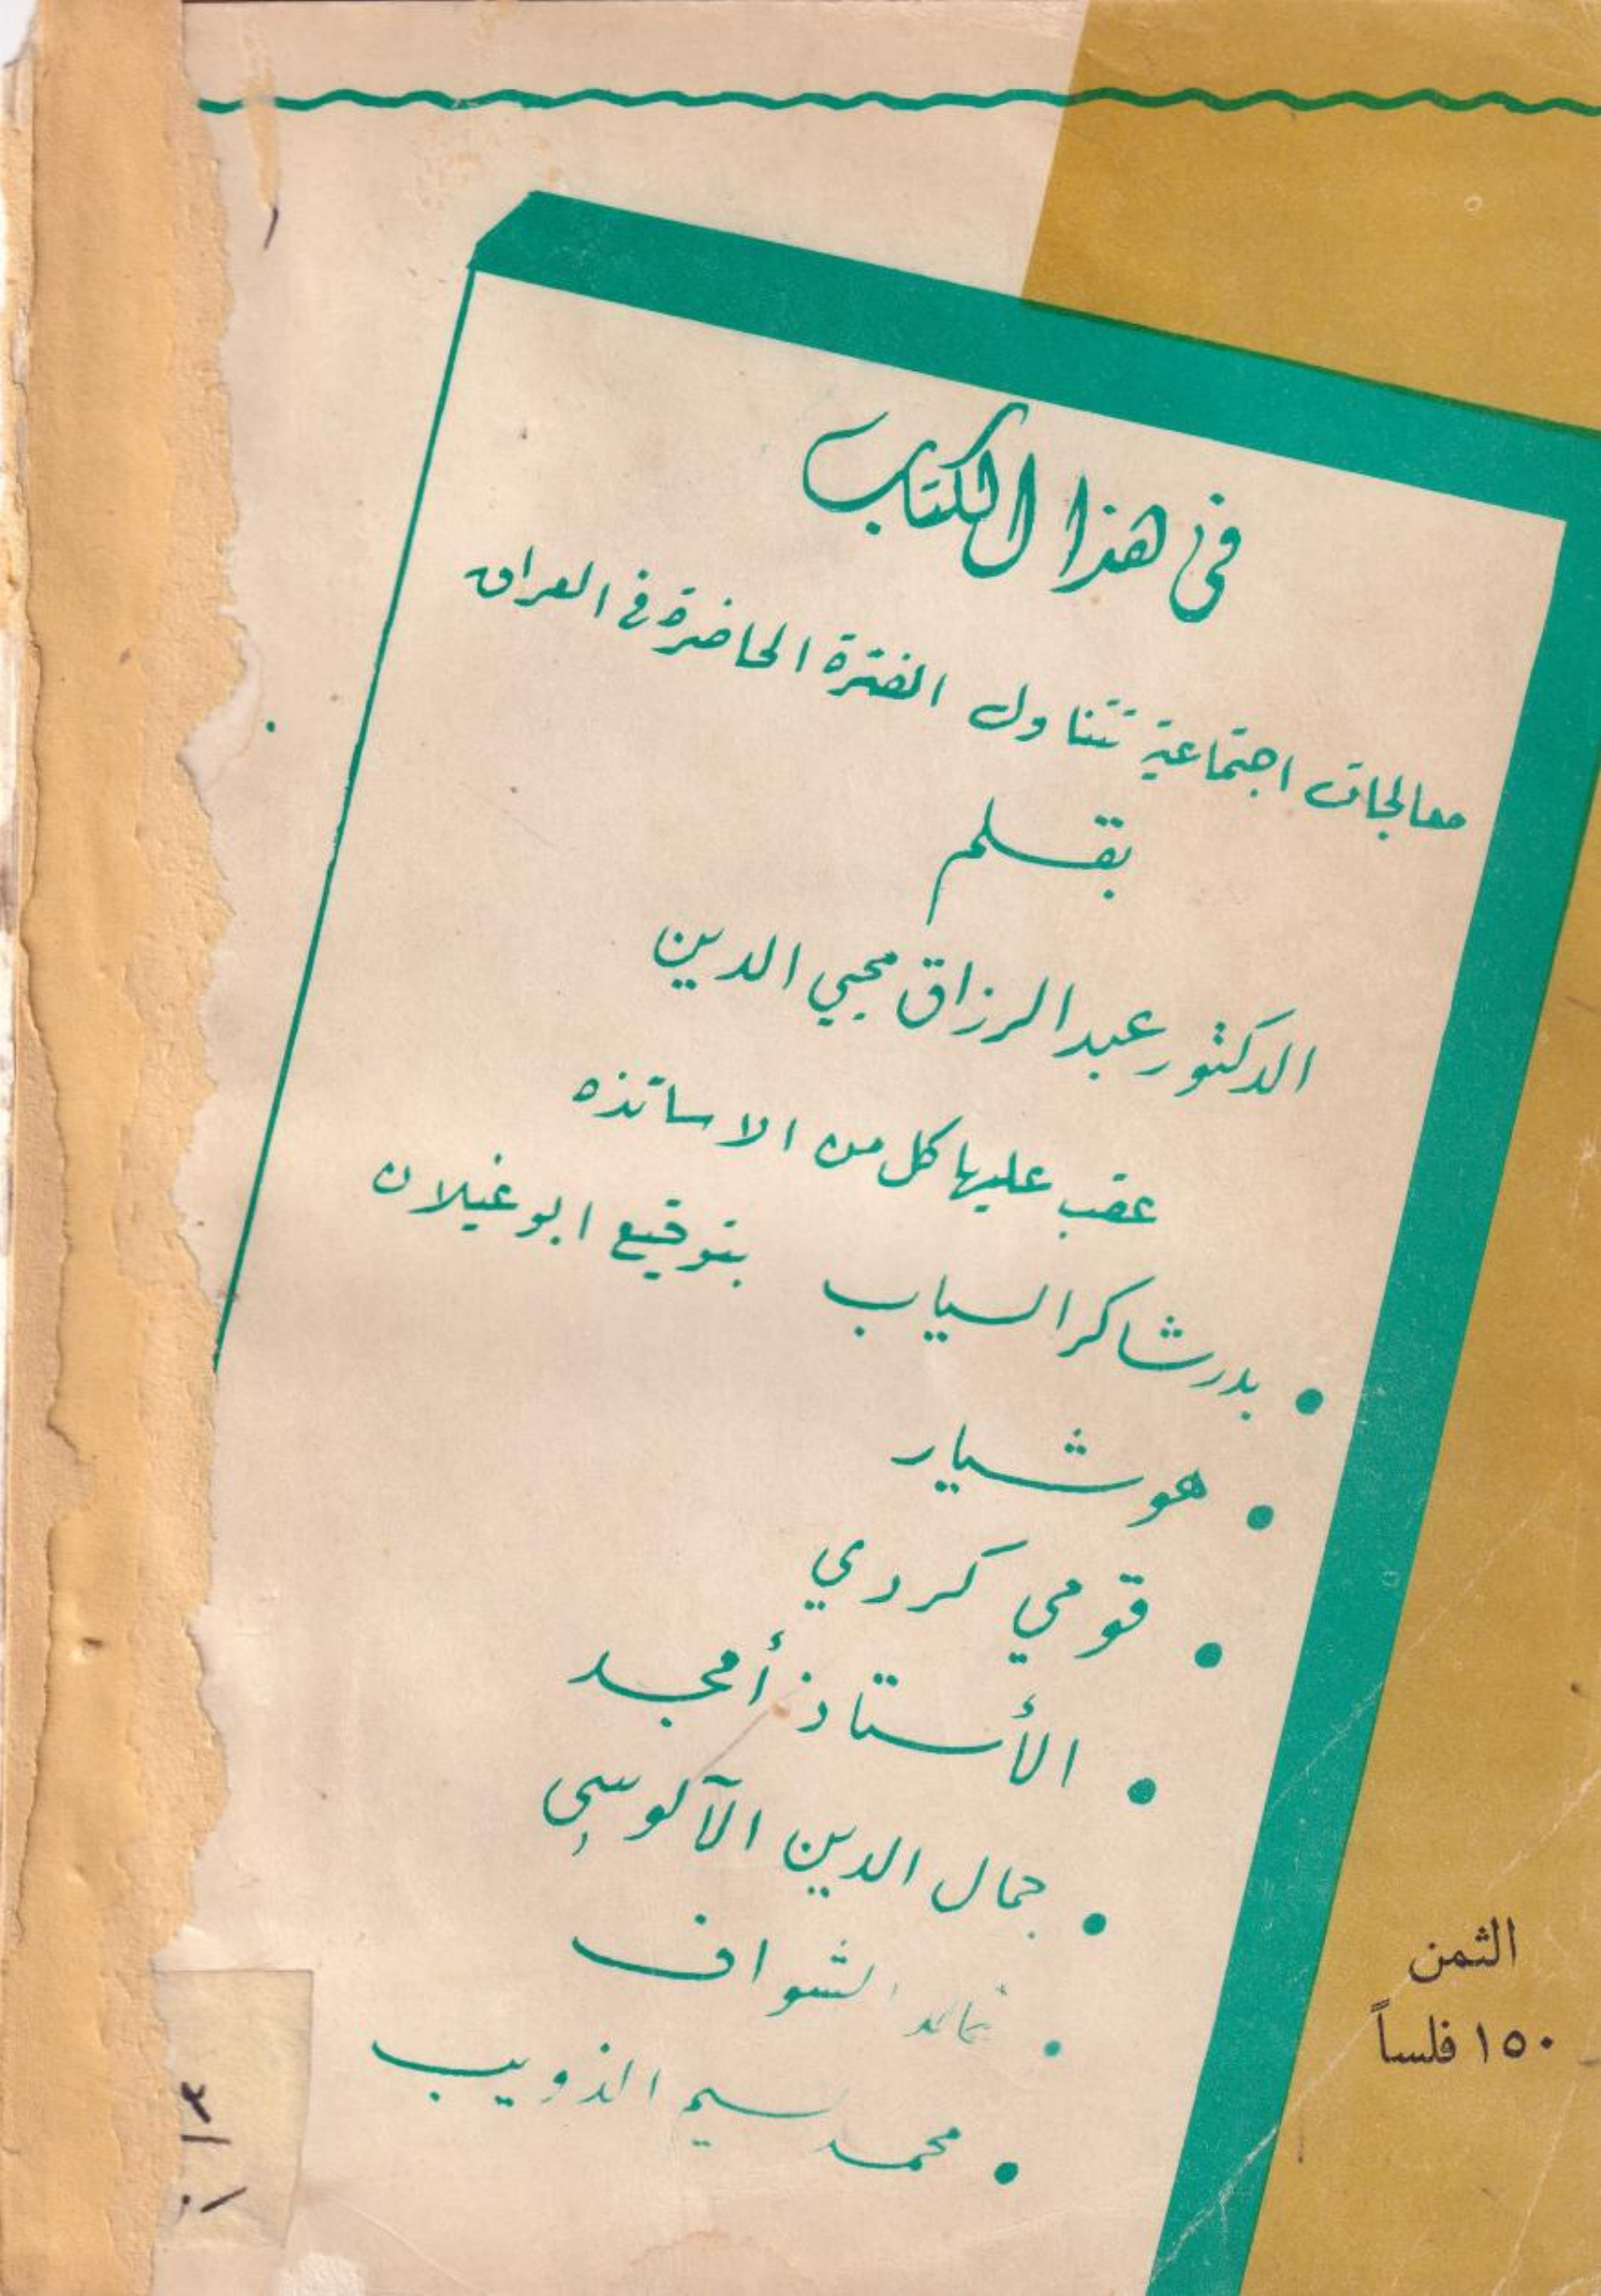 في هذا الكتاب
معالجات اجتماعية تتناول الفترة الحاضرة في العراق
بقلم
الدكتور عبد الرزاق محيي الدين
عقب عليها كل من الاساتذه
• بدر شاكر السياب بتوقيع ابو غيلان
• هوشيار
• قومي كردي
• الأستاذ أمجد
• جمال الدين الآلوسي
• خالد الشواف
• محمد بسيم الذويب
الثمن
١٥٠ فلساً